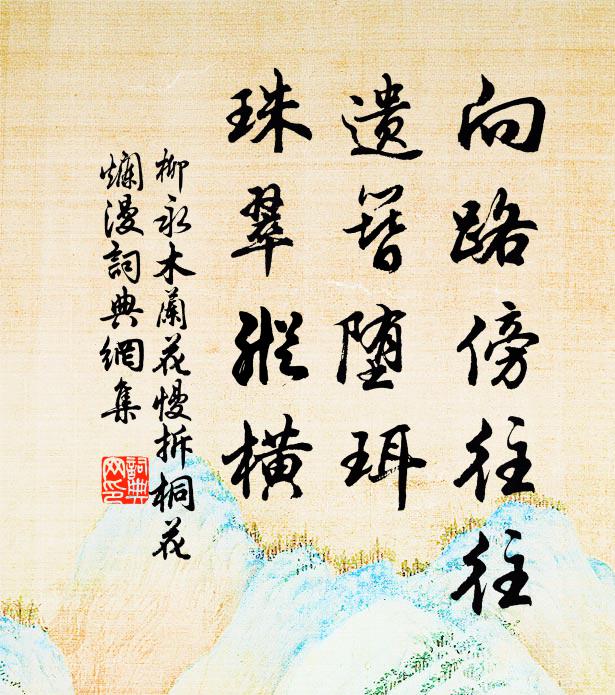 向路傍往往
遗簪堕珥
珠翠縱横
柳永木蘭花慢拆桐花
爛漫詞典網集
詞典
网印